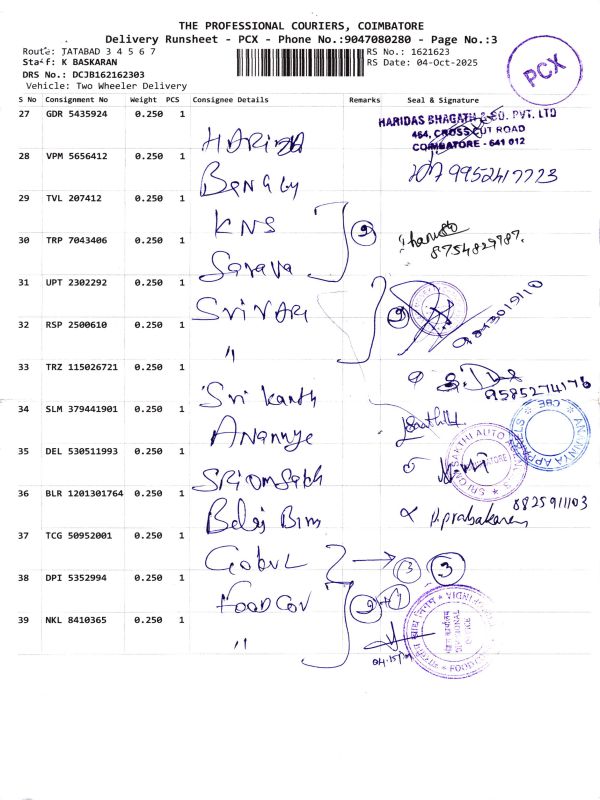 THE PROFESSIONAL COURIERS, COIMBATORE
Delivery Runsheet - PCX - Phone No.:9047080280 - Page No.:3
Route: TATABAD 3 4 5 6 7
RS No.: 1621623
Staff: K BASKARAN
RS Date: 04-Oct-2025
DRS No.: DCJB162162303
Vehicle: Two Wheeler Delivery
PCX
S No Consignment No Weight PCS Consignee Details Remarks Seal & Signature
27 GDR 5435924 0.250 1
HARIDAS BHAGATH & CO. PVT. LTD
464, CROSS CUT ROAD
COIMBATORE - 641 012
28 VPM 5656412 0.250 1
9952417723
29 TVL 207412 0.250 1 KNS
9
30 TRP 7043406 0.250 1 Sarava
8754829787.
31 UPT 2302292 0.250 1 SriVARI
9
32 RSP 2500610 0.250 1 "
33 TRZ 115026721 0.250 1 Sri kanth
9585274176
34 SLM 379441901 0.250 1 Anannye
35 DEL 530511993 0.250 1
SRI OM SAKTHI AUTO
36 BLR 1201301764 0.250 1
P. Prabakaran
8825911103
37 TCG 50952001 0.250 1 Gokul
3 3
38 DPI 5352994 0.250 1 FOOD COV
9+1
39 NKL 8410365 0.250 1 "
04.15pm